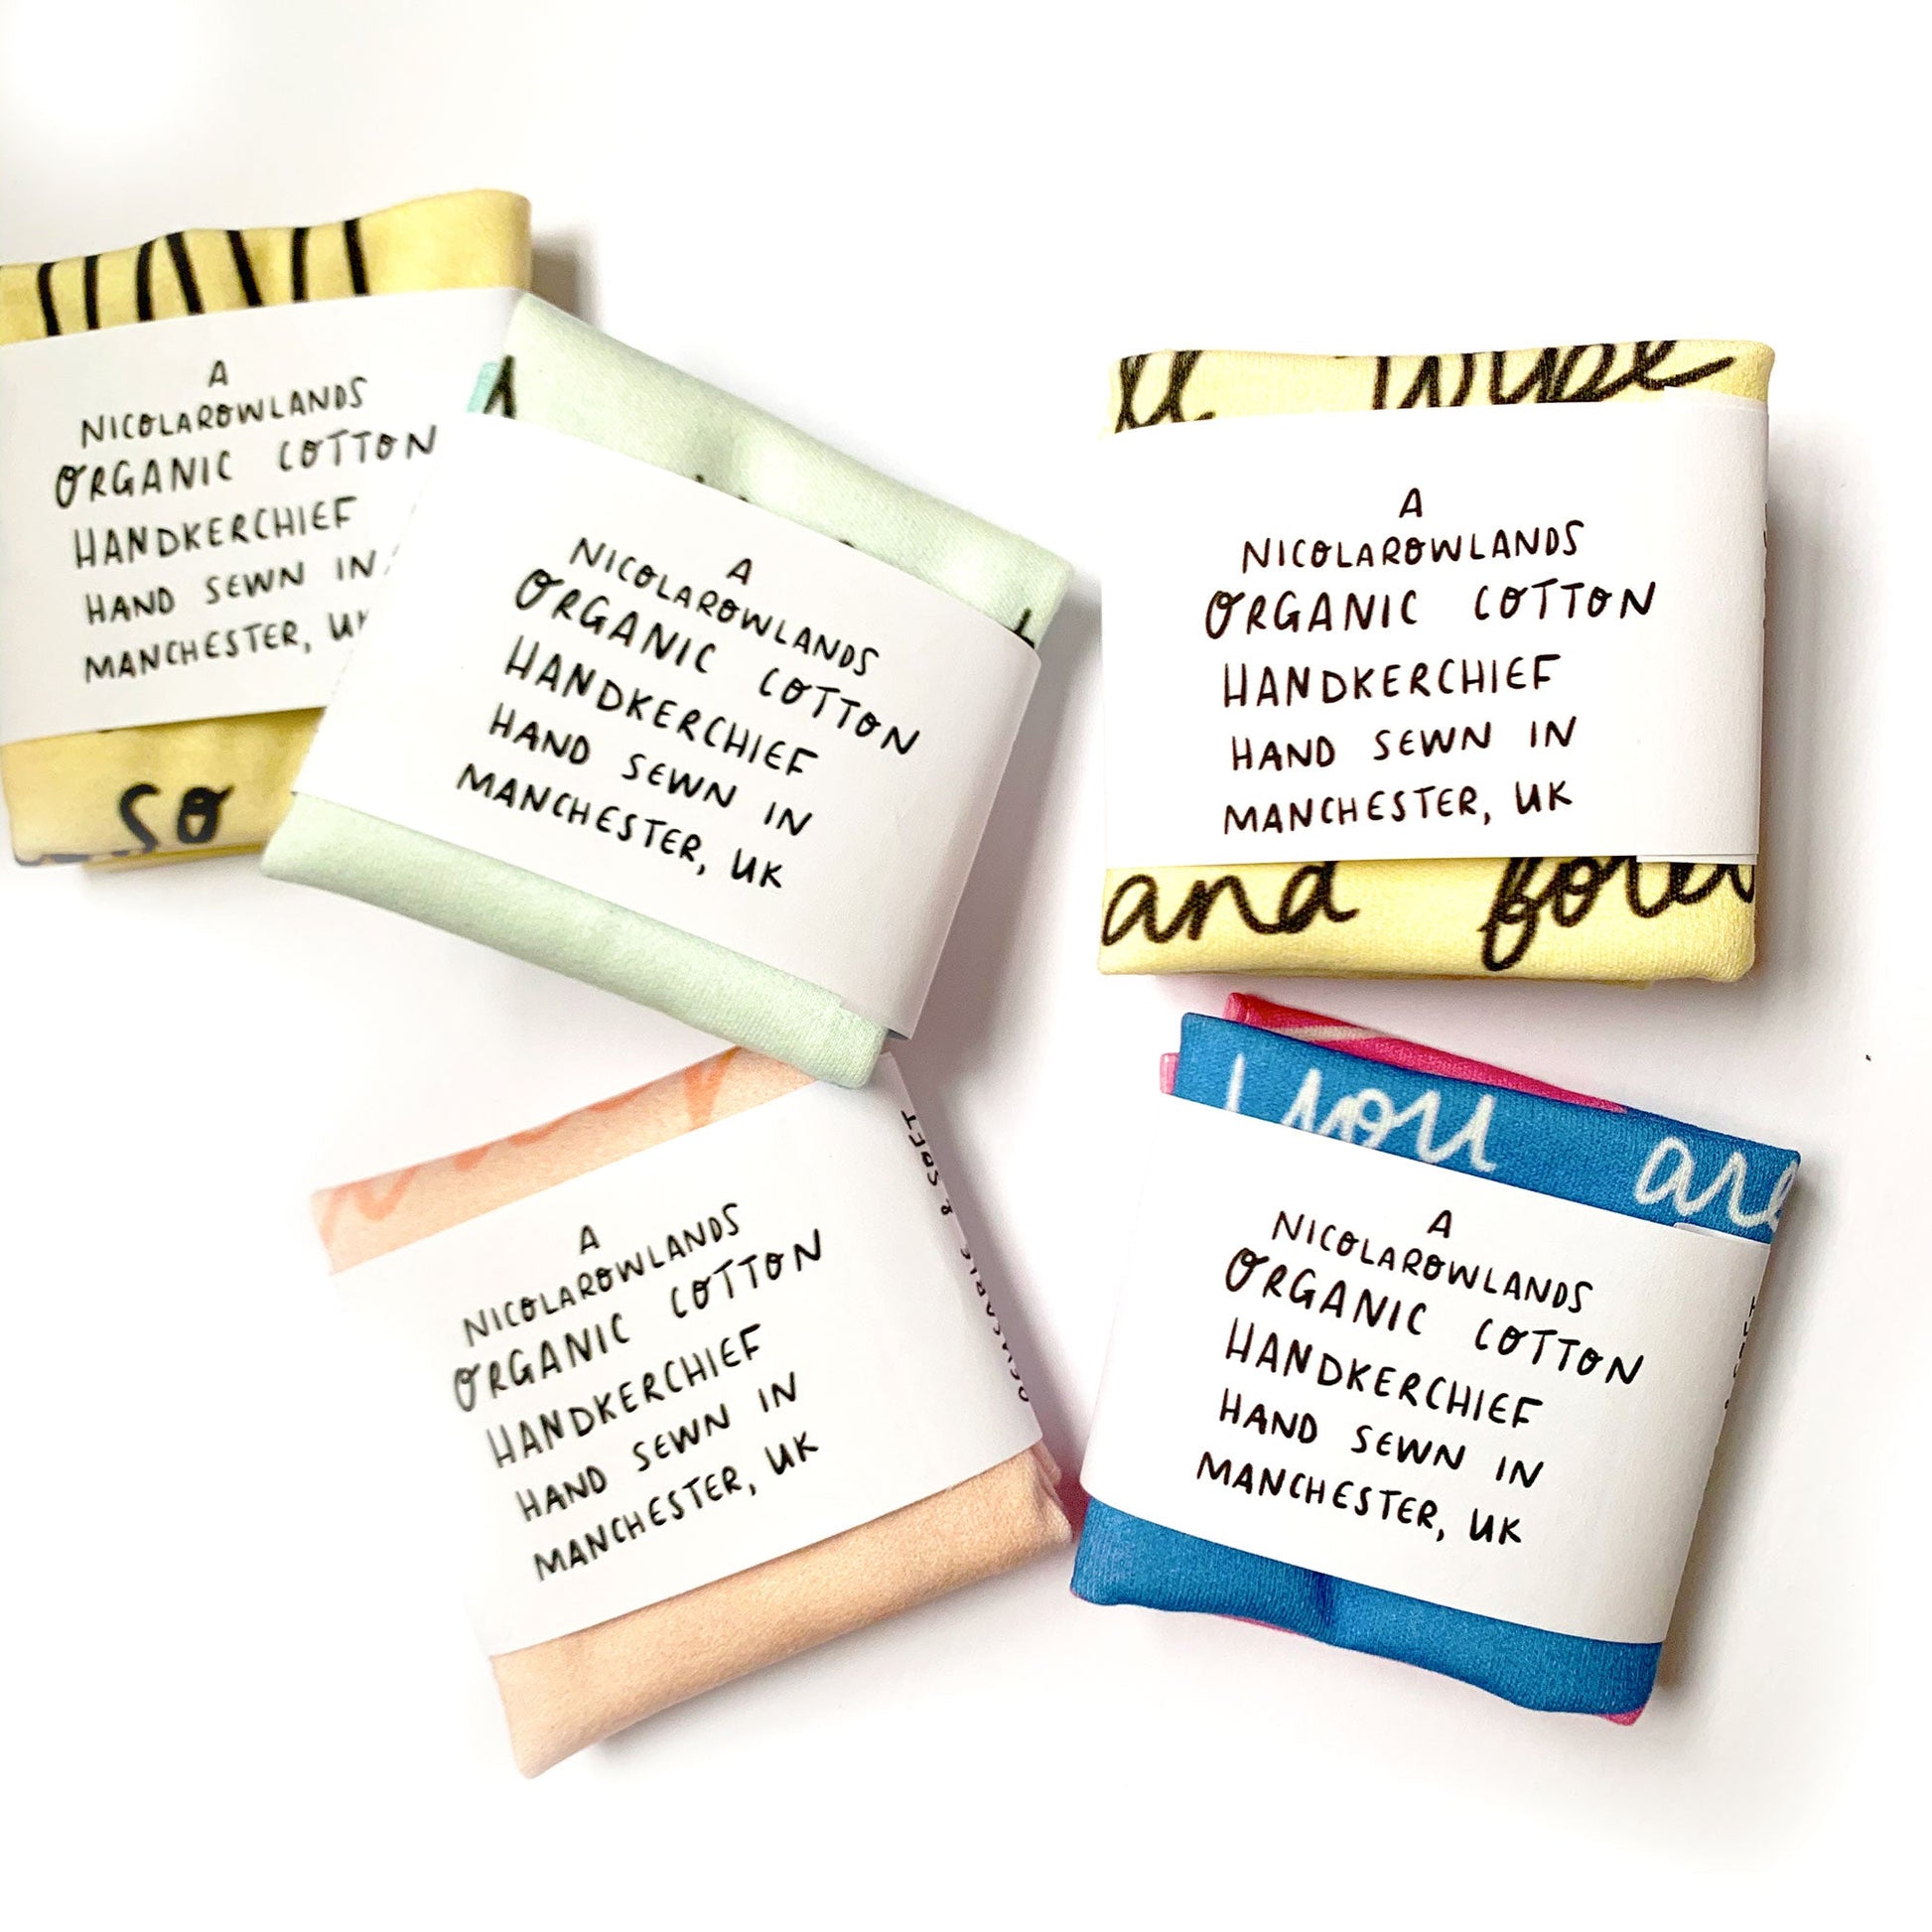 A
NICOLAROWLANDS
ORGANIC COTTON
HANDKERCHIEF
HAND SEWN IN
MANCHESTER, UK
so
A
NICOLAROWLANDS
ORGANIC COTTON
HANDKERCHIEF
HAND SEWN IN
MANCHESTER, UK
wipe
A
NICOLAROWLANDS
ORGANIC COTTON
HANDKERCHIEF
HAND SEWN IN
MANCHESTER, UK
and
A
NICOLAROWLANDS
ORGANIC COTTON
HANDKERCHIEF
HAND SEWN IN
MANCHESTER, UK
REUSABLE & SOFT
you are
A
NICOLAROWLANDS
ORGANIC COTTON
HANDKERCHIEF
HAND SEWN IN
MANCHESTER, UK